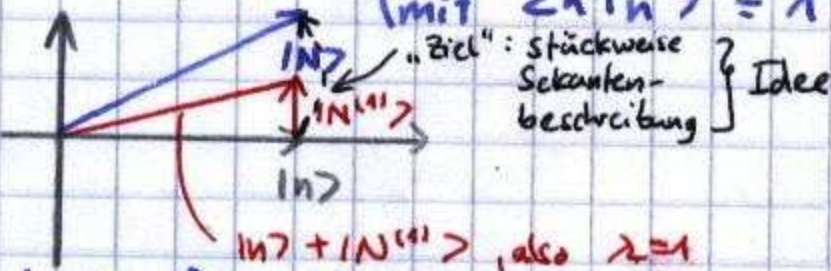 (mit <n|n> = 1
|N>
„Ziel“: stückweise
Sekanten-
beschreibung } Idee
|N⁽¹⁾>
|n>
|n> + |N⁽¹⁾> , also λ=1